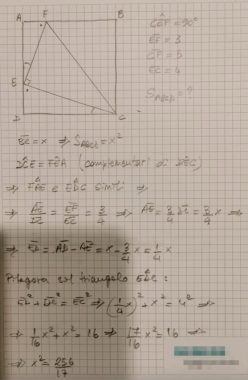 A F B
E
D C
CÊF = 90°
EF = 3
CF = 5
EC = 4
S_ABCD = ?
DC = x ⇒ S_ABCD = x²
DĈE = FÊA (complementari di DÊC)
⇒ FÂE e EDC simili ⇒
⇒ AE/DC = EF/EC = 3/4 ⇒ AE = 3/4 DC = 3/4 x ⇒
⇒ ED = AD - AE = x - 3/4 x = 1/4 x
Pitagora sul triangolo EDC :
ED² + DC² = EC² ⇒ (1/4 x)² + x² = 4² ⇒
⇒ 1/16 x² + x² = 16 ⇒ 17/16 x² = 16 ⇒
⇒ x² = 256/17